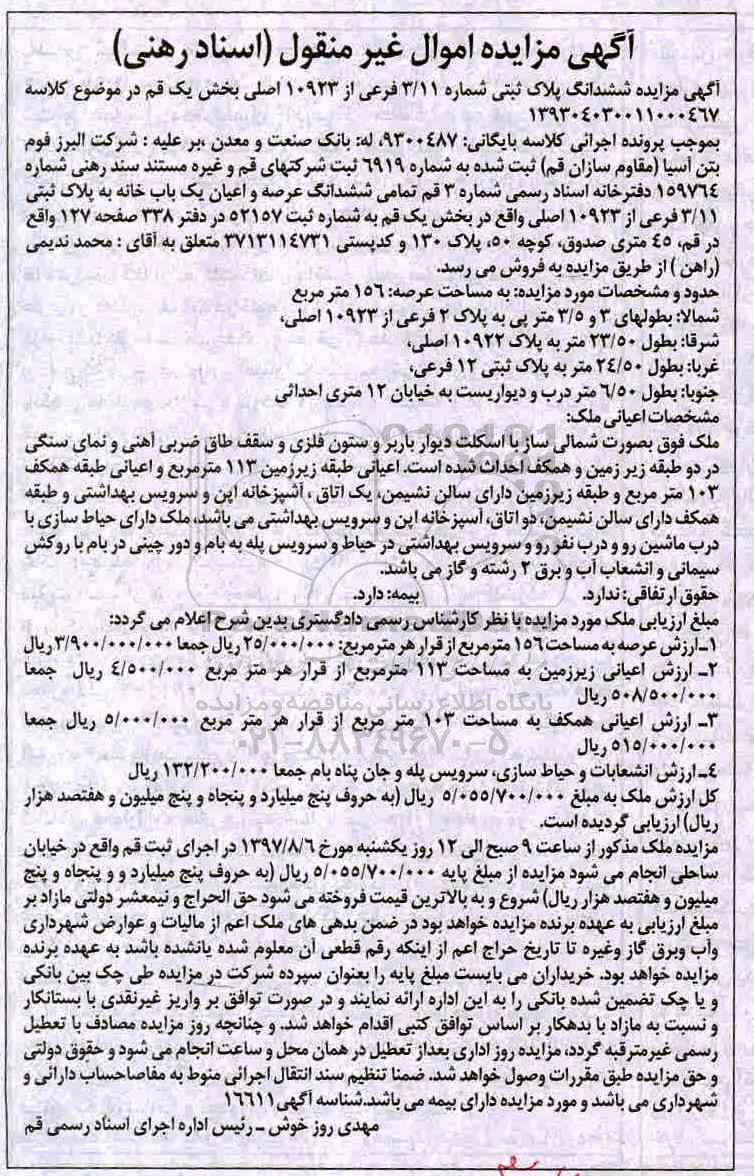 آگهی مزایده اموال غیر منقول (اسناد رهنی)
آگهی مزایده ششدانگ پلاک ثبتی شماره ۳/۱۱ فرعی از ۱۰۹۲۳ اصلی بخش یک قم در موضوع کلاسه
۱۳۹۳۰۴۰۳۰۰۱۱۰۰۰۴۶۷
بموجب پرونده اجرائی کلاسه بایگانی: ۹۳۰۰۴۸۷، له: بانک صنعت و معدن ،بر علیه : شرکت البرز فوم
بتن آسیا (مقاوم سازان قم) ثبت شده به شماره ۶۹۱۹ ثبت شرکتهای قم و غیره مستند سند رهنی شماره
۱۵۹۷۶۴ دفترخانه اسناد رسمی شماره ۳ قم تمامی ششدانگ عرصه و اعیان یک باب خانه به پلاک ثبتی
۳/۱۱ فرعی از ۱۰۹۲۳ اصلی واقع در بخش یک قم به شماره ثبت ۵۲۱۵۷ در دفتر ۳۳۸ صفحه ۱۲۷ واقع
در قم، ۴۵ متری صدوق، کوچه ۵۰، پلاک ۱۳۰ و کدپستی ۳۷۱۳۱۱۴۷۳۱ متعلق به آقای : محمد ندیمی
(راهن ) از طریق مزایده به فروش می رسد.
حدود و مشخصات مورد مزایده: به مساحت عرصه: ۱۵۶ متر مربع
شمالا: بطولهای ۳ و ۳/۵ متر پی به پلاک ۲ فرعی از ۱۰۹۲۳ اصلی،
شرقا: بطول ۲۳/۵۰ متر به پلاک ۱۰۹۲۲ اصلی،
غربا: بطول ۲۴/۵۰ متر به پلاک ثبتی ۱۲ فرعی،
جنوبا: بطول ۶/۵۰ متر درب و دیواریست به خیابان ۱۲ متری احداثی
مشخصات اعیانی ملک:
ملک فوق بصورت شمالی ساز با اسکلت دیوار باربر و ستون فلزی و سقف طاق ضربی آهنی و نمای سنگی
در دو طبقه زیر زمین و همکف احداث شده است. اعیانی طبقه زیرزمین ۱۱۳ مترمربع و اعیانی طبقه همکف
۱۰۳ متر مربع و طبقه زیرزمین دارای سالن نشیمن، یک اتاق ، آشپزخانه اپن و سرویس بهداشتی و طبقه
همکف دارای سالن نشیمن، دو اتاق، آسپزخانه اپن و سرویس بهداشتی می باشد، ملک دارای حیاط سازی با
درب ماشین رو و درب نفر رو و سرویس بهداشتی در حیاط و سرویس پله به بام و دور چینی در بام با روکش
سیمانی و انشعاب آب و برق ۲ رشته و گاز می باشد.
حقوق ارتفاقی: ندارد. بیمه: دارد.
مبلغ ارزیابی ملک مورد مزایده با نظر کارشناس رسمی دادگستری بدین شرح اعلام می گردد:
۱ـ ارزش عرصه به مساحت ۱۵۶ مترمربع از قرار هر مترمربع: ۲۵/۰۰۰/۰۰۰ ریال جمعا ۳/۹۰۰/۰۰۰/۰۰۰ ریال
۲ـ ارزش اعیانی زیرزمین به مساحت ۱۱۳ مترمربع از قرار هر متر مربع ۴/۵۰۰/۰۰۰ ریال جمعا
۵۰۸/۵۰۰/۰۰۰ ریال
۳ـ ارزش اعیانی همکف به مساحت ۱۰۳ متر مربع از قرار هر متر مربع ۵/۰۰۰/۰۰۰ ریال جمعا
۵۱۵/۰۰۰/۰۰۰ ریال
۴ـ ارزش انشعابات و حیاط سازی، سرویس پله و جان پناه بام جمعا ۱۳۲/۲۰۰/۰۰۰ ریال
کل ارزش ملک به مبلغ ۵/۰۵۵/۷۰۰/۰۰۰ ریال (به حروف پنج میلیارد و پنجاه و پنج میلیون و هفتصد هزار
ریال) ارزیابی گردیده است.
مزایده ملک مذکور از ساعت ۹ صبح الی ۱۲ روز یکشنبه مورخ ۱۳۹۷/۸/۶ در اجرای ثبت قم واقع در خیابان
ساحلی انجام می شود مزایده از مبلغ پایه ۵/۰۵۵/۷۰۰/۰۰۰ ریال (به حروف پنج میلیارد و و پنجاه و پنج
میلیون و هفتصد هزار ریال) شروع و به بالاترین قیمت فروخته می شود حق الحراج و نیمعشر دولتی مازاد بر
مبلغ ارزیابی به عهده برنده مزایده خواهد بود در ضمن بدهی های ملک اعم از مالیات و عوارض شهرداری
وآب وبرق گاز وغیره تا تاریخ حراج اعم از اینکه رقم قطعی آن معلوم شده یانشده باشد به عهده برنده
مزایده خواهد بود. خریداران می بایست مبلغ پایه را بعنوان سپرده شرکت در مزایده طی چک بین بانکی
و یا چک تضمین شده بانکی را به این اداره ارائه نمایند و در صورت توافق بر واریز غیرنقدی با بستانکار
و نسبت به مازاد با بدهکار بر اساس توافق کتبی اقدام خواهد شد. و چنانچه روز مزایده مصادف با تعطیل
رسمی غیرمترقبه گردد، مزایده روز اداری بعداز تعطیل در همان محل و ساعت انجام می شود و حقوق دولتی
و حق مزایده طبق مقررات وصول خواهد شد. ضمنا تنظیم سند انتقال اجرائی منوط به مفاصاحساب دارائی و
شهرداری می باشد و مورد مزایده دارای بیمه می باشد.شناسه آگهی۱۶۶۱۱
مهدی روز خوش ـ رئیس اداره اجرای اسناد رسمی قم
پایگاه اطلاع رسانی مناقصه و مزایده
۰۲۱-۸۸۳۴۹۶۷۰-۵